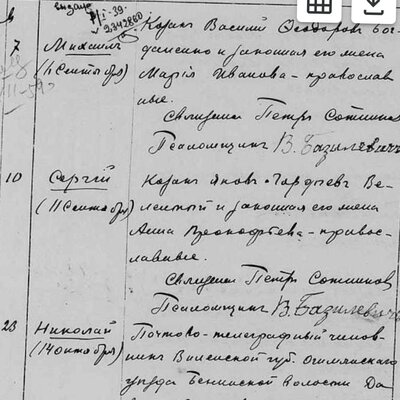 выдано
9/I-39.
v 2342860
7
Михаилъ
(1 Сентября)
Козакъ Василій Ѳеодоровъ Бог-
даненко и законная его жена
Марія Иванова - православ
ные.
Священникъ Петръ Сотников
Псаломщикъ В. Базилевичъ
10
Сергій
(11 Сентября)
Козакъ Яковъ Гордѣевъ Ве-
и законная его жена
Анна - правос-
лавные.
Священникъ Петръ Сотников
Псаломщикъ В. Базилевичъ
23
Николай
(14 октября)
Почтово-телеграфный чинов-
никъ Виленской губ. Ошмянскаго
уѣзда Беницкой волости Да